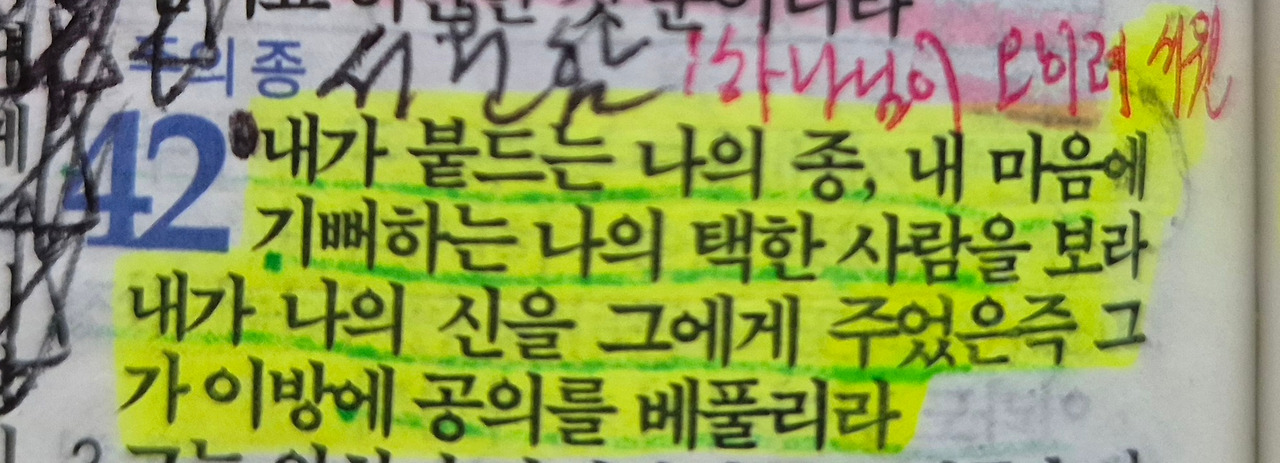 주의 종
! 하나님이
42 내가 붙드는 나의 종, 내 마음에
기뻐하는 나의 택한 사람을 보라
내가 나의 신을 그에게 주었은즉 그
가 이방에 공의를 베풀리라